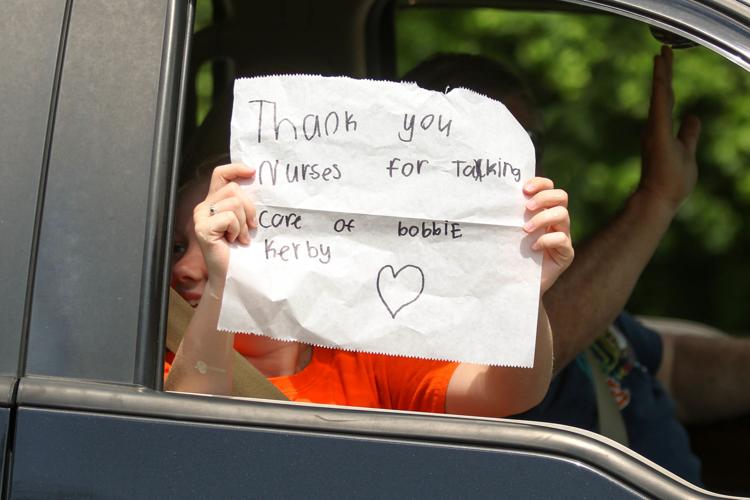 Thank you
Nurses for Talking
Care of bobbiE
Kerby